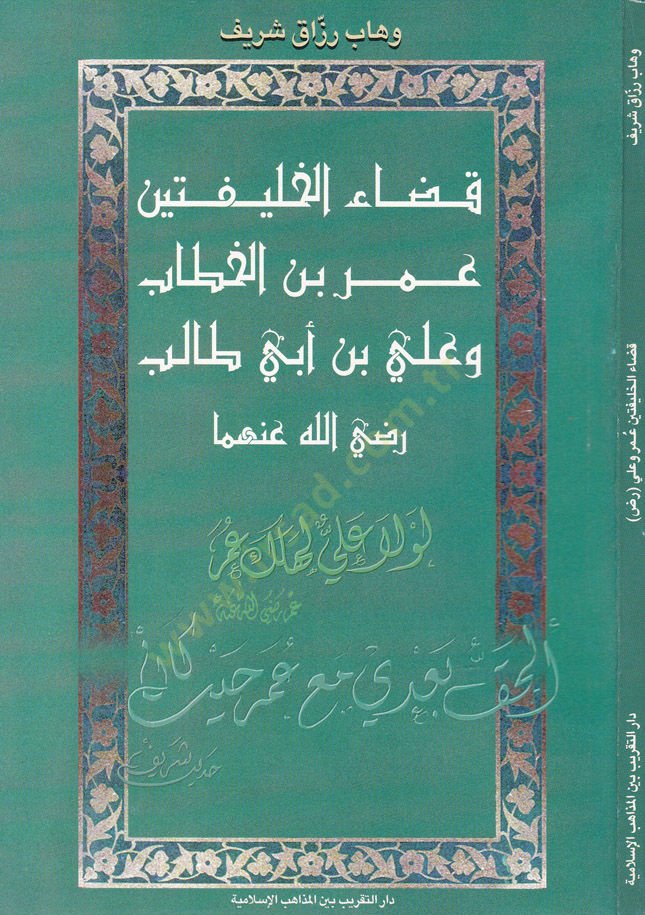 وهاب رزّاق شريف
قضاء الخليفتين
عمر بن الخطاب
وعلي بن أبي طالب
رضي الله عنهما
لولا عليٌّ لهلك عمر
عمر رضي الله عنه
ألحقُّ بعدي مع عُمر حيث كان
حديث شريف
دار التقريب بين المذاهب الإسلامية
وهاب رزّاق شريف
قضاء الخليفتين عُمر وعلي (رض)
دار التقريب بين المذاهب الإسلامية